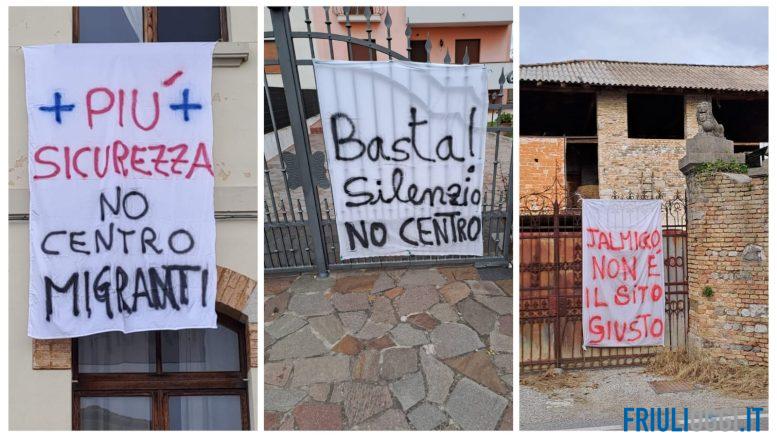 + PIÚ +
SICUREZZA
NO
CENTRO
MIGRANTI
Basta!
Silenzio
NO CENTRO
JALMICCO
NON É
IL SITO
GIUSTO
FRIULIOGGI.IT